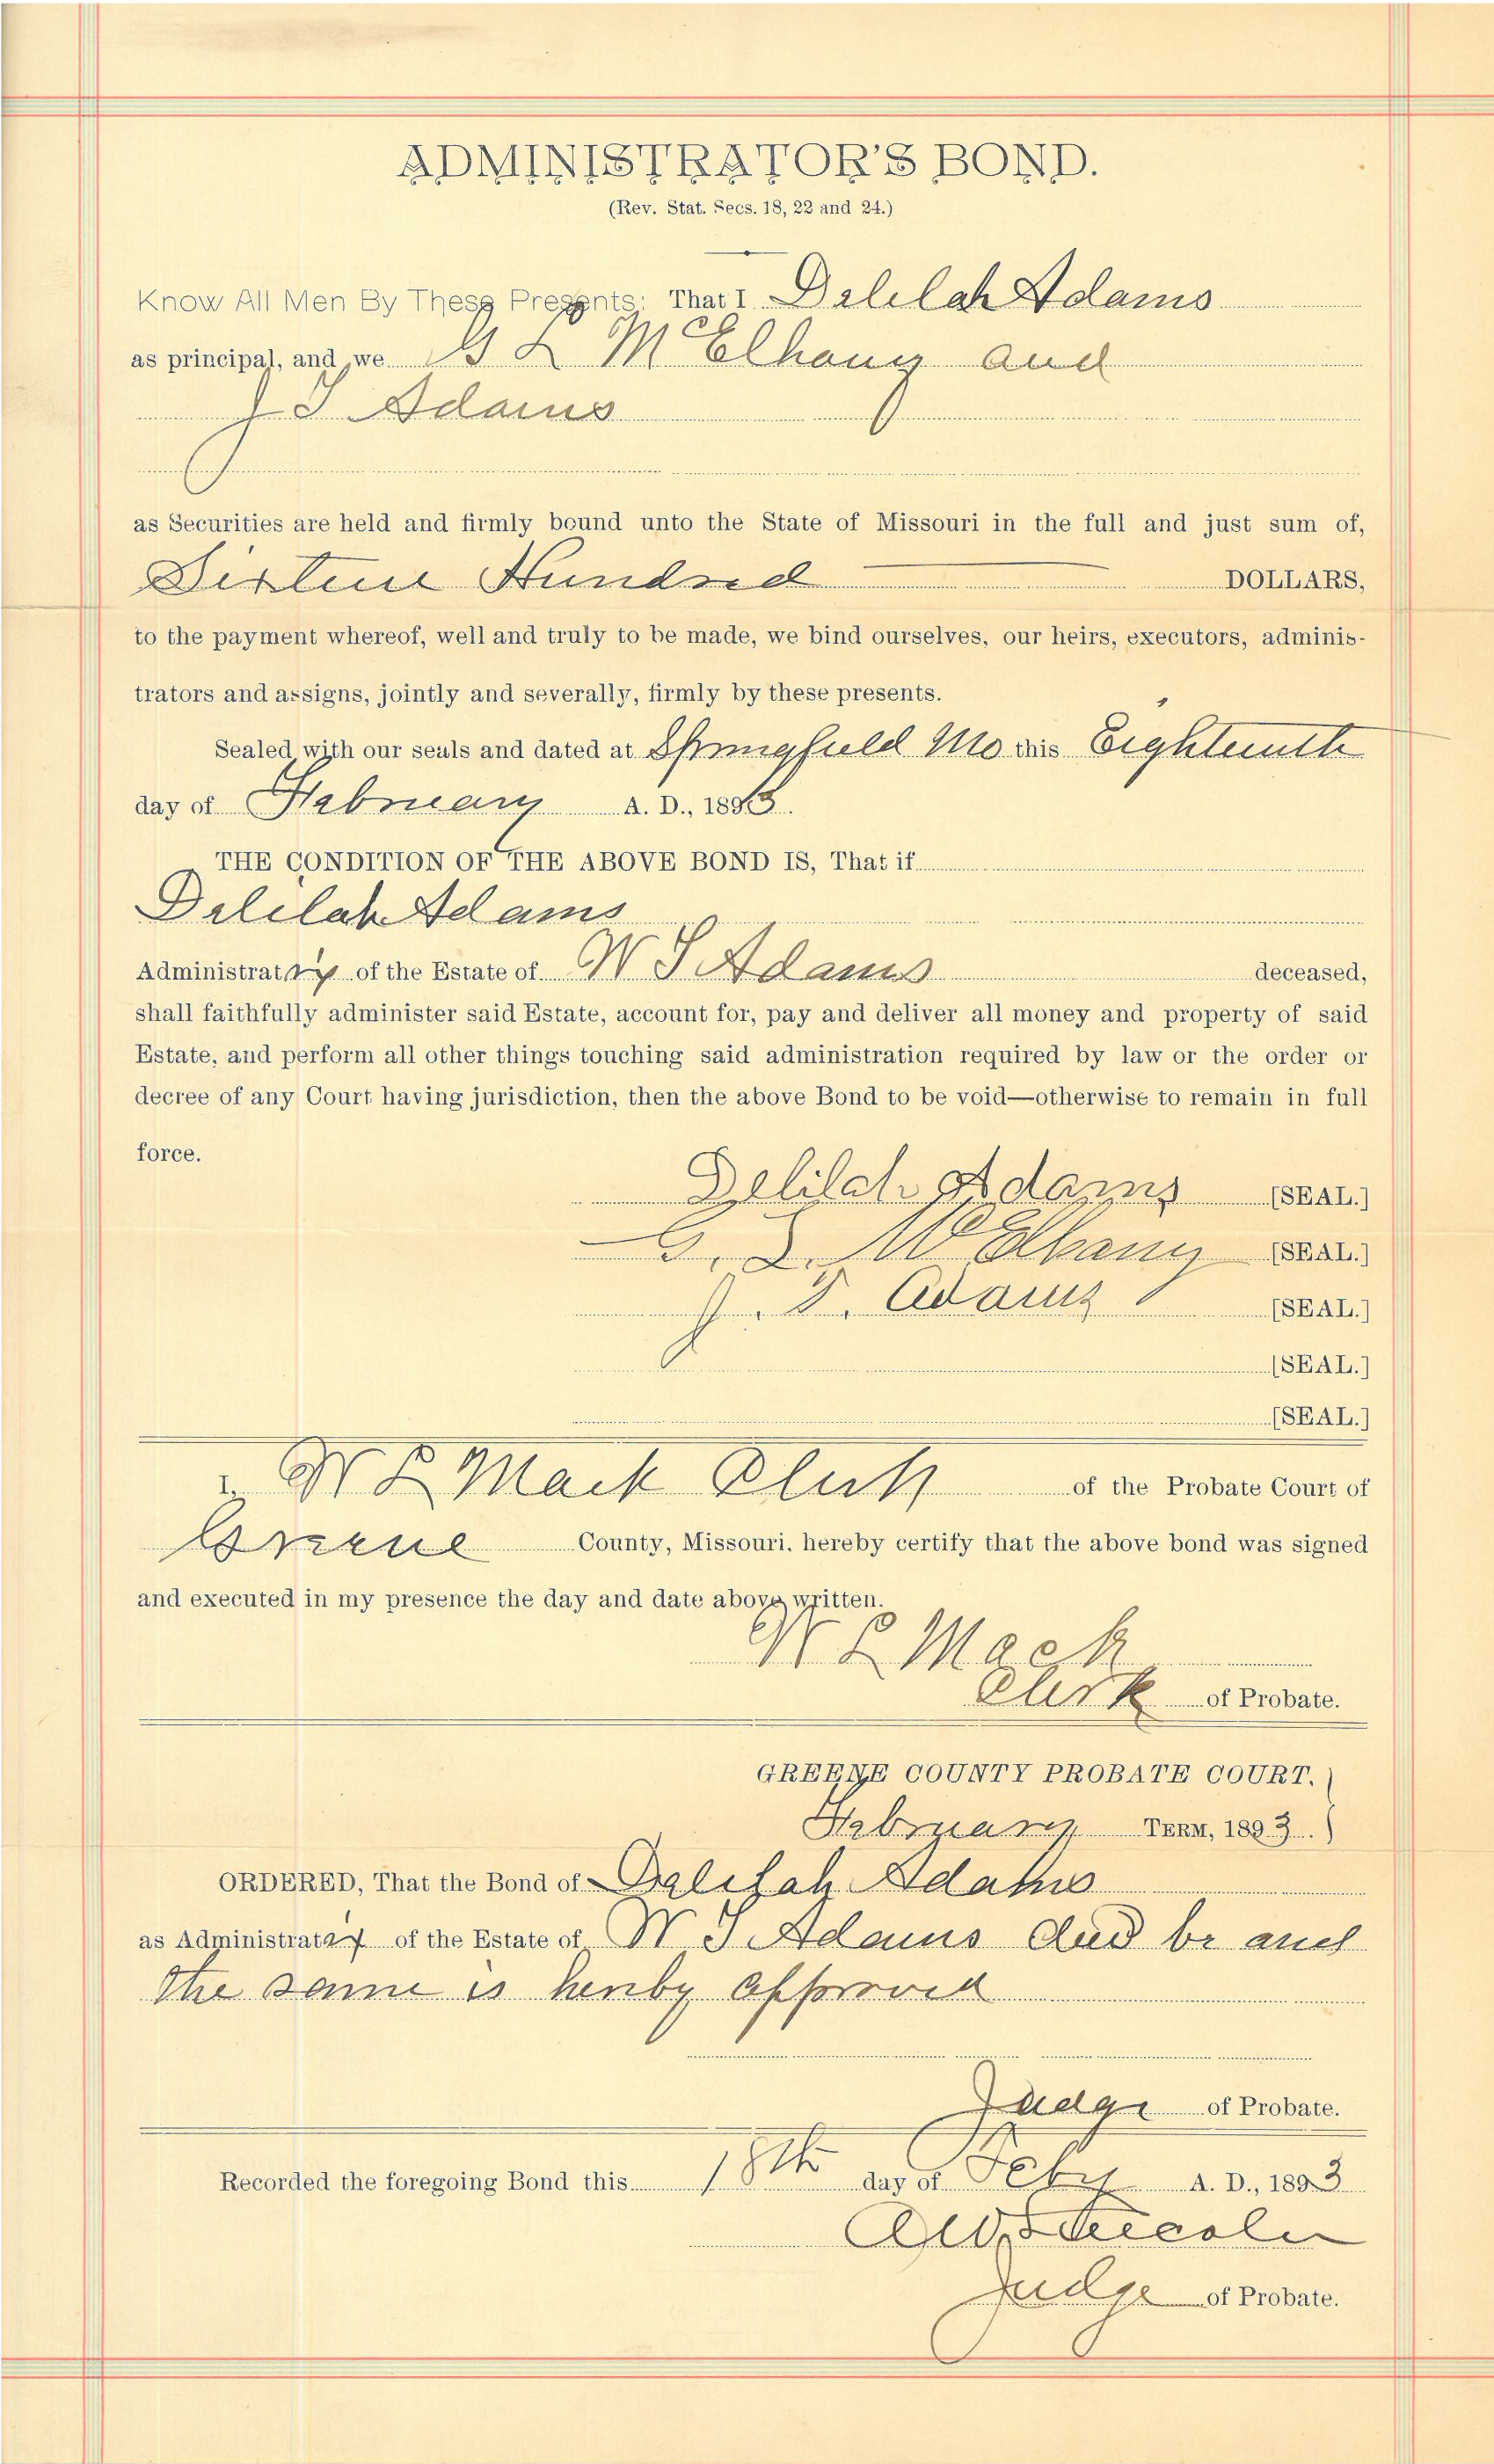 ADMINISTRATOR'S BOND.
(Rev. Stat. Secs. 18, 22 and 24.)
Know All Men By These Presents: That I Delilah Adams
as principal, and we G L McElhany and
J T Adams
as Securities are held and firmly bound unto the State of Missouri in the full and just sum of,
Sixteen Hundred DOLLARS,
to the payment whereof, well and truly to be made, we bind ourselves, our heirs, executors, adminis-
trators and assigns, jointly and severally, firmly by these presents.
Sealed with our seals and dated at Springfield Mo this Eighteenth
day of February A. D., 1893.
THE CONDITION OF THE ABOVE BOND IS, That if
Delilah Adams
Administratrix of the Estate of W S Adams deceased,
shall faithfully administer said Estate, account for, pay and deliver all money and property of said
Estate, and perform all other things touching said administration required by law or the order or
decree of any Court having jurisdiction, then the above Bond to be void—otherwise to remain in full
force.
Delilah Adams [SEAL.]
G. L. McElhany [SEAL.]
J. T. Adams [SEAL.]
[SEAL.]
[SEAL.]
I, W L Mack Clerk of the Probate Court of
Greene County, Missouri. hereby certify that the above bond was signed
and executed in my presence the day and date above written.
W L Mack
Clerk of Probate.
GREENE COUNTY PROBATE COURT. )
February TERM, 1893. )
ORDERED, That the Bond of Delilah Adams
as Administratrix of the Estate of W S Adams decd be and
the same is hereby approved
Judge of Probate.
Recorded the foregoing Bond this 18th day of Feby A. D., 1893
Judge of Probate.